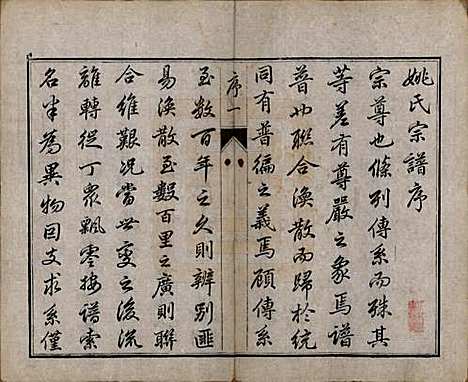 姚氏宗譜序
宗尊也條列傳系而殊其
等差有尊嚴之象焉譜
普也聯合渙散而歸於統
同有普徧之義焉顧傳系
序一
至數百年之久則辨別匪
易渙散至數百里之廣則聯
合維艱况當世變之後流
離轉徙丁眾飄零按譜索
名半為異物因支求系僅